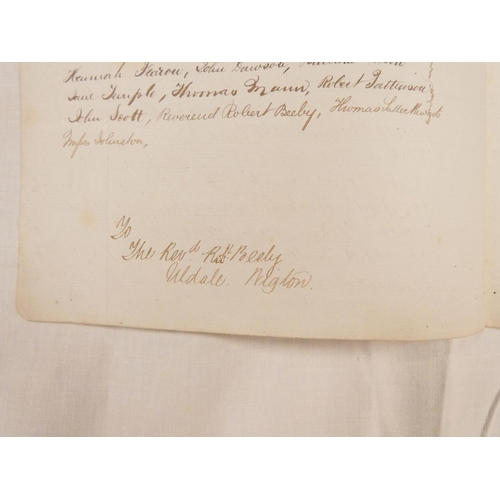 Hannah Pearson, John Dawson,
Jane Temple, Thomas Mann, Robert Pattinson
John Scott, Reverend Robert Beeby, Thomas
Miss Johnston,
To
The Revd. Robt. Beeby
Uldale. Wigton.